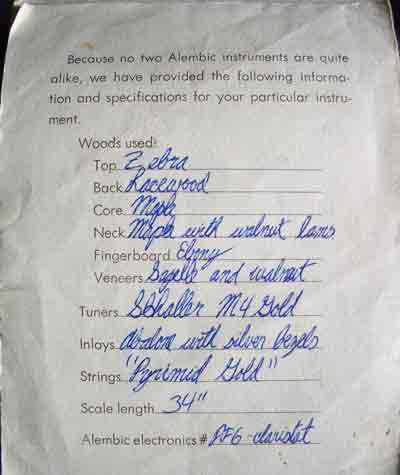 Because no two Alembic instruments are quite
alike, we have provided the following informa-
tion and specifications for your particular instru-
ment.
Woods used:
Top Zebra
Back Lacewood
Core Maple
Neck Maple with walnut lams
Fingerboard Ebony
Veneers and walnut
Tuners Schaller M4 Gold
Inlays with silver bezels
Strings "Pyrimid Gold"
Scale length 34"
Alembic electronics #